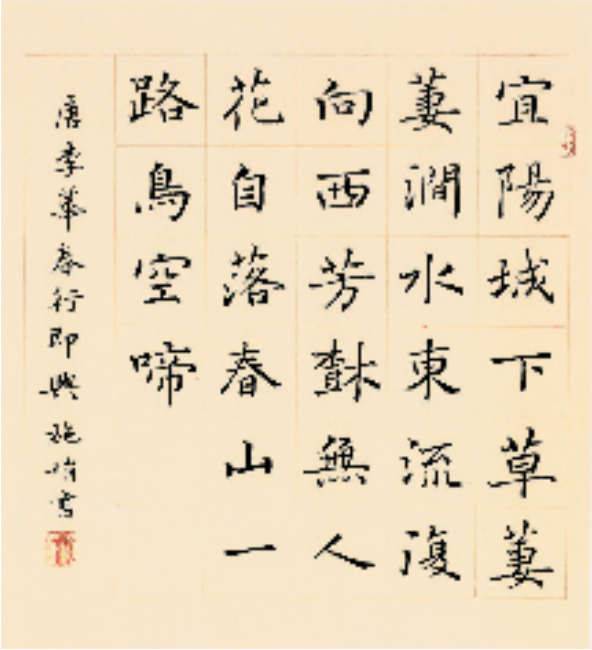 宜陽城下草萋
萋澗水東流復
向西芳樹無人
花自落春山一
路鳥空啼
唐李華春行即興 施書